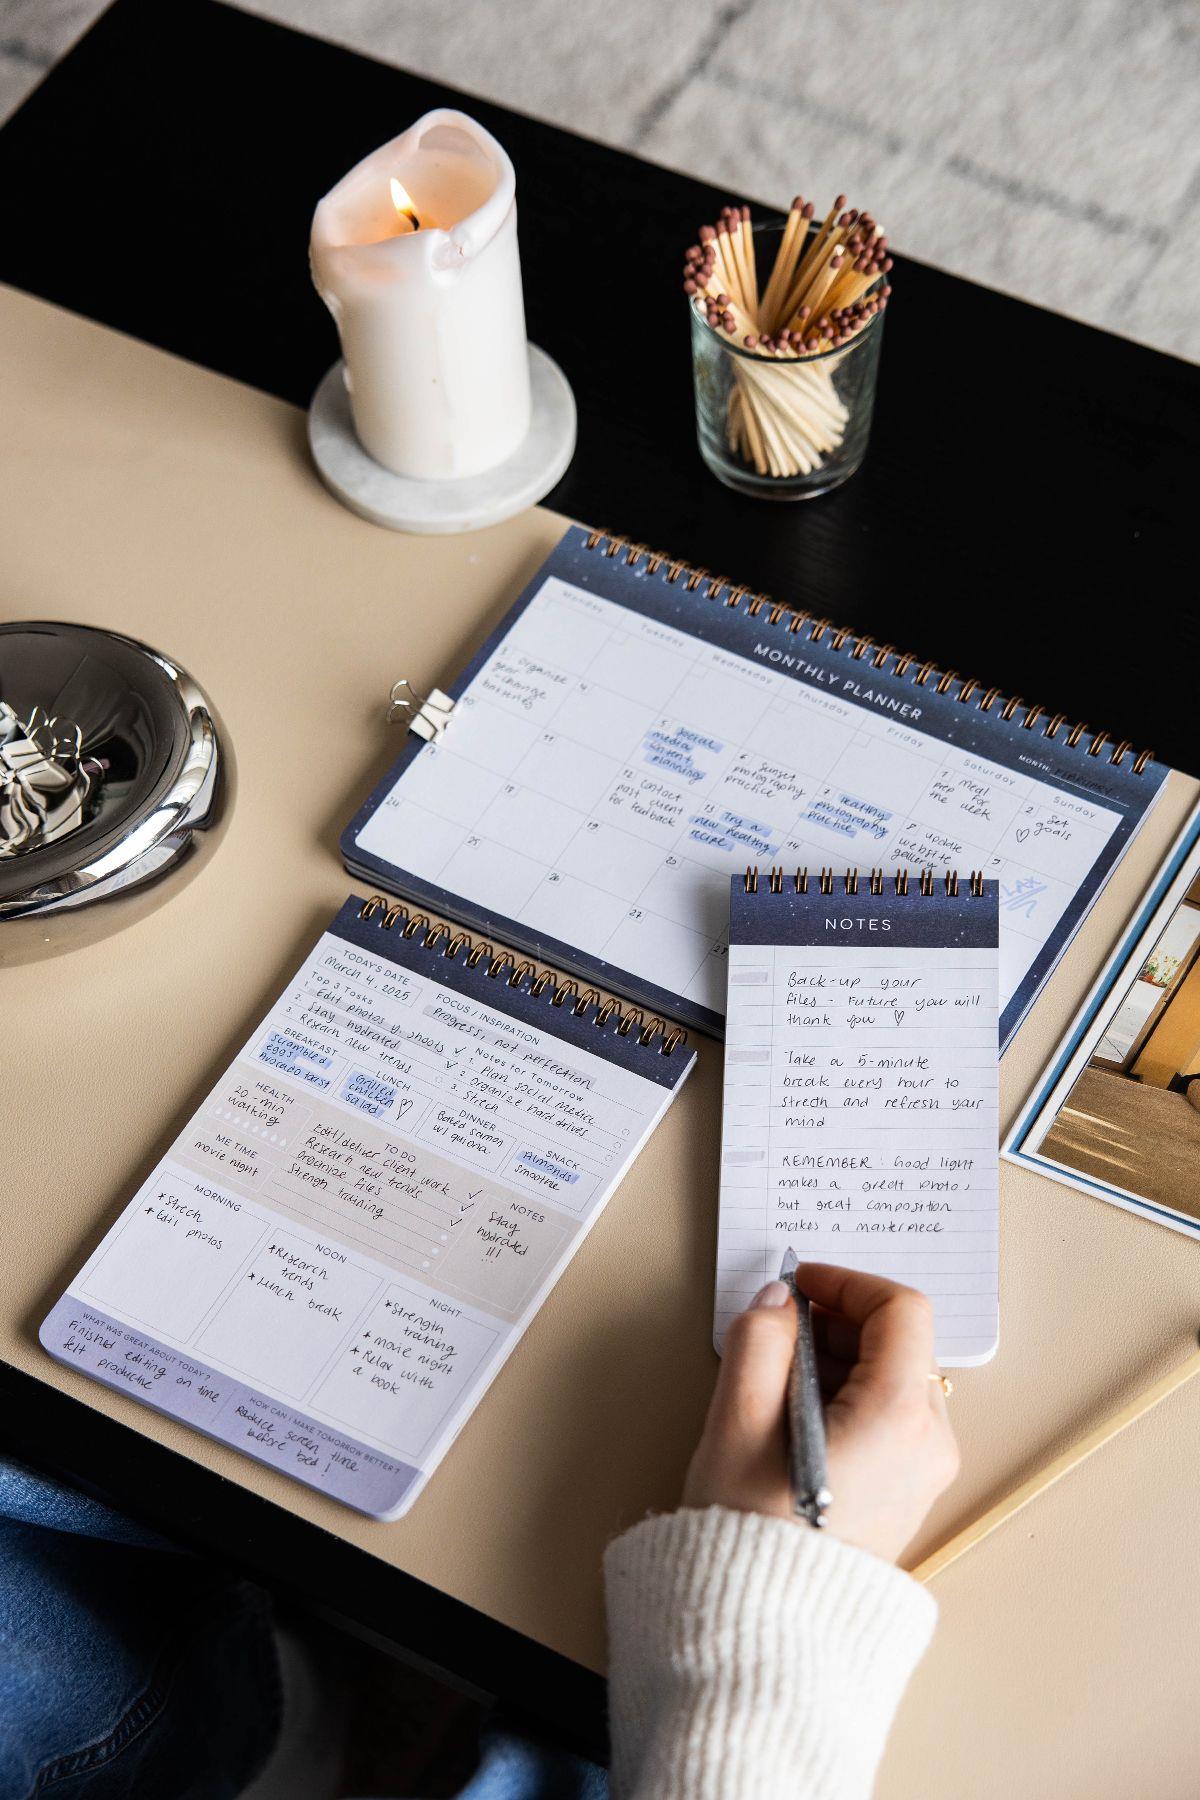 MONTHLY PLANNER
MONTH: FEBRUARY
Monday
Tuesday
Wednesday
Thursday
Friday
Saturday
Sunday
1 meal
prep for
the week
2 set
goals
3 organize
gear - change
batteries
4
5 Social
media
content
planning
6 sunset
photography
practice
7 Healthy
photography
practice
8 update
website
gallery
9
10
11
12 Contact
past client
for feedback
13 Try a
new healthy
recipe
14
17
18
19
20
24
25
26
27
NOTES
Back-up your
files - Future you will
thank you ♡
Take a 5-minute
break every hour to
stretch and refresh your
mind
REMEMBER: Good light
makes a great photo,
but great composition
makes a masterpiece
TODAY'S DATE
March 4, 2025
FOCUS / INSPIRATION
Progress, not perfection
Top 3 Tasks
1. Edit photos
2. Stay hydrated
3. Researn new trends
Notes for Tomorrow
1. Plan social media
2. Organize hard drives
3. Strech
BREAKFAST
Scrambled
eggs
Avocado toast
LUNCH
Grilled
chicken
salad
DINNER
Baked samon
w/ quiona
SNACK
Almonds
smoothie
HEALTH
20-min
walking
TO DO
Edit/deliver client work
Research new trends
Organize files
Strength training
ME TIME
movie night
NOTES
Stay
hydrated
!!!
MORNING
*Strech
*Edit photos
NOON
*Research
trends
*Lunch break
NIGHT
*Strength
training
*movie night
*Relax with
a book
WHAT WAS GREAT ABOUT TODAY?
Finished editing on time
felt productive
HOW CAN I MAKE TOMORROW BETTER?
Reduce screen time
before bed!